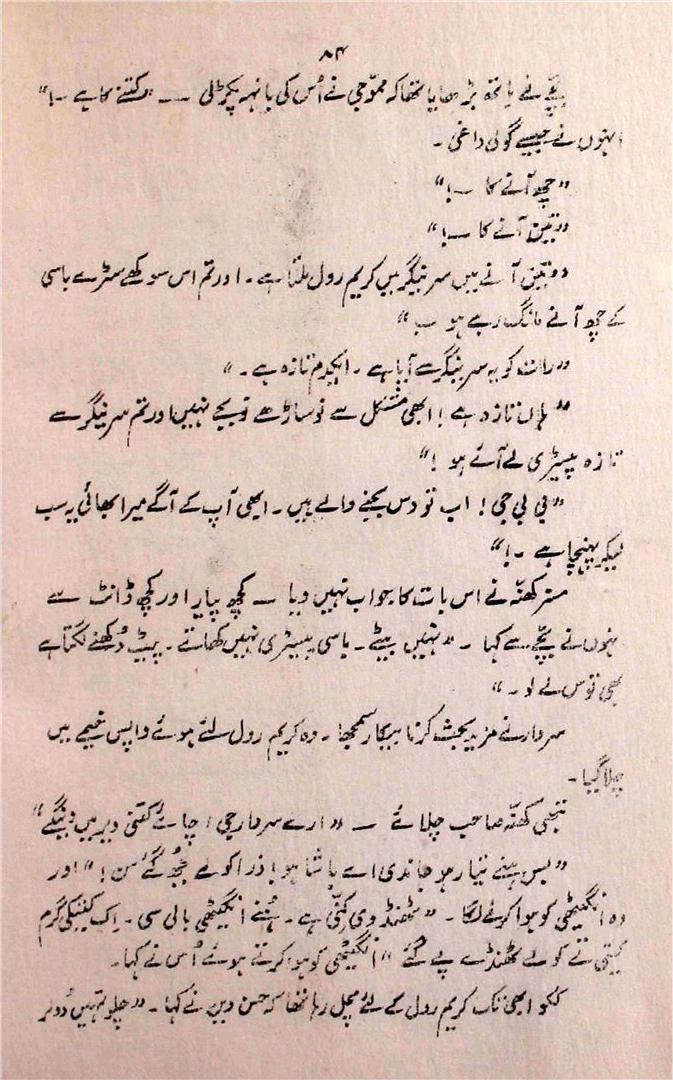 ۸۴
بچّے نے ہاتھ بڑھایا تھا کہ ممّو جی نے اُس کی بانہہ پکڑ لی — "کتنے کا ہے -!"
انہوں نے جیسے گولی داغی -
"چھ آنے کا -!"
"تین آنے کا -!"
"تین آنے میں سرینگر میں کریم رول ملتا ہے - اور تم اس سوکھے سڑے باسی
کے چھ آنے مانگ رہے ہو -"
"رات کو یہ سرینگر سے آیا ہے - ایکدم تازہ ہے -"
"ہاں تازہ ہے ! ابھی مشکل سے نو ساڑھے نو بجے نہیں اور تم سرینگر سے
تازہ پیسٹری لے آئے ہو !"
"بی بی جی ! اب تو دس بجنے والے ہیں - ابھی آپ کے آگے میرا بھائی یہ سب
لیکر پہنچا ہے -!"
مسز کھنّہ نے اس بات کا جواب نہیں دیا — کچھ پیار اور کچھ ڈانٹ سے
انہوں نے بچّے سے کہا - "نہیں بیٹے - باسی پیسٹری نہیں کھاتے - پیٹ دُکھنے لگتا ہے
ابھی توس لے لو -"
سردار نے مزید بحث کرنا بیکار سمجھا - وہ کریم رول لئے ہوئے واپس خیمے میں
چلا گیا -
تبھی کھنّہ صاحب چلائے — "ارے سردار جی ! چائے کتنی دیر میں دینگے"
"بس ہینے تیار ہو جاندی اے باشا ہو ! ذرا کولے بُجھ گئے سن !" اور
وہ انگیٹھی کو ہوا کرنے لگا - "ٹھنڈ وی کتّی ہے - ہُنے انگیٹھی بالی سی - اِک کیتلی گرم
کیتی تے کولے ٹھنڈے پے گئے" انگیٹھی کو ہوا کرتے ہوئے اُس نے کہا -
ککو ابھی تک کریم رول کے لئے مچل رہا تھا کہ حسن دین نے کہا - "چلو تمہیں دُور